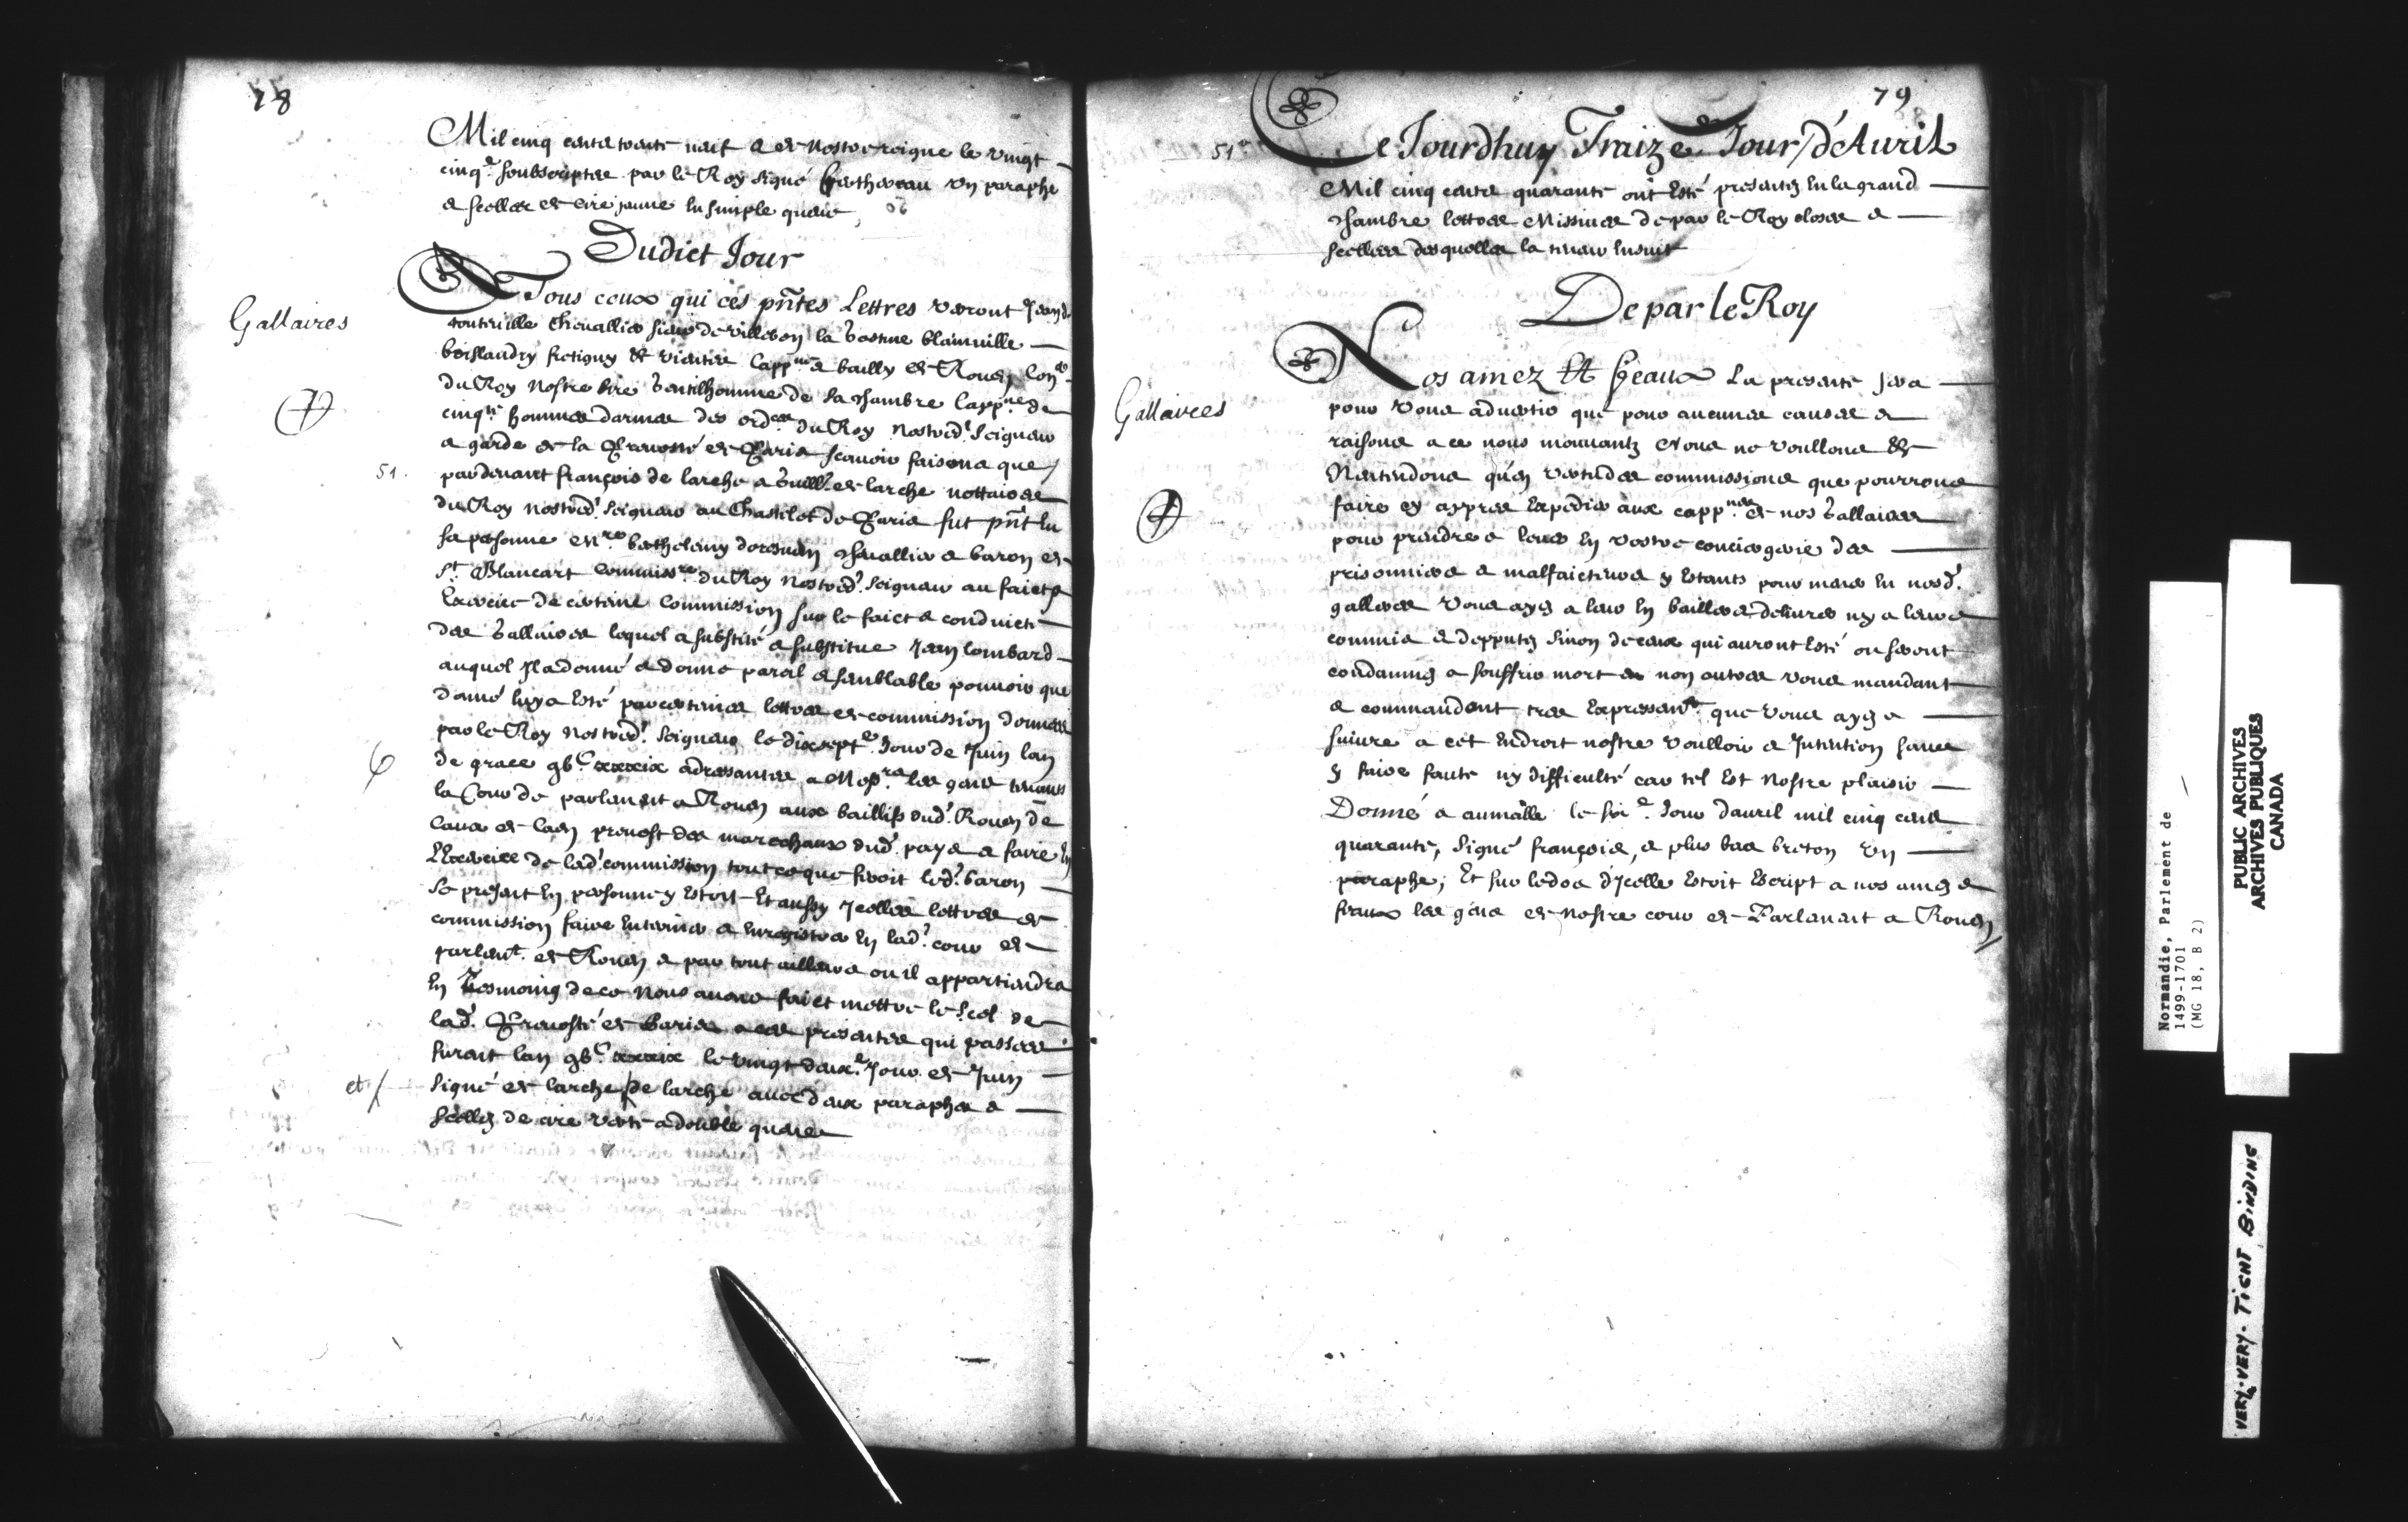 78
Mil cinq cents trente neuf & de nostre reigne le vingt
cinq.e soubscriptes par le Roy signé Berthereau un paraphe
& scellees de cire jaune en simple queue
Dudict Jour
Gallaires
A Tous ceux qui ces pñtes Lettres verront Jean d.
touteville Chevallier sieur de villebon la gastine blainville
boislandry fretigny et vientes Capp.ne & bailly de Rouen Con.er
du Roy nostre sire gentilhomme de sa chambre Capp.ne de
cinq.te hommes darmes des ord.ces du Roy nostred. Seigneur
& garde de la Prevosté de Paris scavoir faisons que
51.
pardevant françois de larche & Guill. de larche nottaires
du Roy nostred. Seigneur au Chastelet de Paris fut pñt en
sa personne M.re berthelemy chevallier & baron de
S.t Blancart commiss.re du Roy nostred. Seigneur au faict &
Exercice de certaine Commission sur le faict & conduicte
des gallaires lequel a substitué & substitue Jean lombard
auquel Il a donné & donne pareil & semblable pouvoir que
donné luy a Esté par certaines lettres de commission donnees
par le Roy nostred. Seigneur le dixsept.e Jour de Juin lan
de grace gb.C xxxix adressantes a Mess.rs les gens tenants
la Cour de parlement a Rouen aux baillifs dud. Rouen de
Caux de Caen prevost des marechaux dud. pays & faire En
L'Exercice de lad. commission tout ce que feroit led. baron
Se present En personne y Estoit Et aussy Icelles lettres de
commission faire Enteriner & Enregistrer En lad. cour de
parlem.t de Rouen & par tout ailleurs ou il appartiendra
En Tesmoing de ce Nous avons faict mettre le Scel de
lad. Prevosté de Paris a ces presentes qui passees
furent lan gb.C xxxix le vingt deux.e Jour de Juin
et
Signé de larche de larche avec deux paraphes &
scellez de cire verte a double queue
79
51.
Ce Jourdhuy Traiz.e Jour d'Avril
Mil cinq cents quarante ont Esté presentez En la grand
chambre lettres Missives de par le Roy closes &
scellees desquelles la teneur Ensuit
De par le Roy
Gallaires
Nos amez Et feaux La presente sera
pour vous advertir que pour aucunes causes &
raisons a ce nous mouvants Nous ne voullons &
Nentendons qu'en vertu des commissions que pourrons
faire cy apres Expedier aux capp.nes de nos Gallaires
pour prendre & lever En vostre conciergerie des
prisonniers & malfaicteurs y Estants pour mener En nosd.
galleres vous ayez a leur En bailler & delivrer ny a leurs
commis & depputez Sinon de ceux qui auront Esté ou seront
condamnez a souffrir mort & non autres vous mandant
& commandant tres Expressem.t que vous ayez a
suivre a cet Endroit nostre voulloir & Intention sans
y faire faute ny difficulté car tel Est Nostre plaisir
Donné a aumalle le Jour davril mil cinq cens
quarante, Signé françois, & plus bas breton Un
paraphe; Et sur le dos d'Icelle Estoit Escript a nos amez &
feaux les gens de Nostre cour de Parlement a Rouen
Normandie, Parlement de
1499-1701
(MG 18, B 2)
PUBLIC ARCHIVES
ARCHIVES PUBLIQUES
CANADA
VERY-VERY-TIGHT BINDING